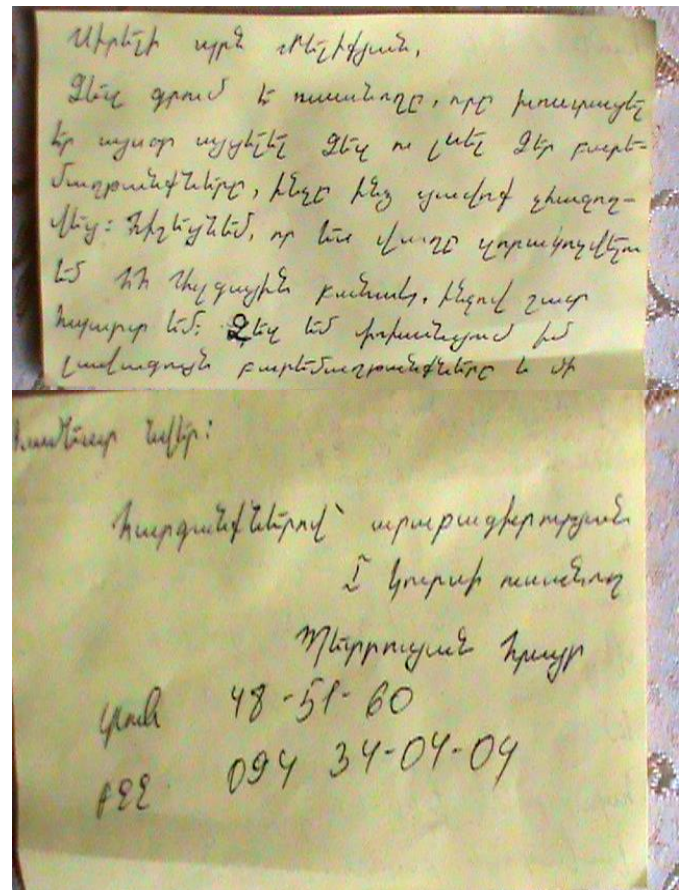 Սիրելի պրն Մելիքյան,
Ձեզ գրում է ուսանողը, որը խոստացել
էր այսօր այցելել Ձեզ ու լսել Ձեր բարե-
մաղթանքները, ինչը ինձ չհաջող-
վեց: Հիշեցնեմ, որ ես վաղը զորակոչվելու
եմ ՀՀ Ազգային բանակ, ինչով շատ
հպարտ եմ: Ձեզ եմ փոխանցում իմ
լավագույն բարեմաղթանքները և մի
համեստ նվեր:
Հարգանքներով՝ արաբագիտության
I կուրսի ուսանող
Պետրոսյան Հրայր
տուն 48-51-60
բջջ. 094 34-04-04